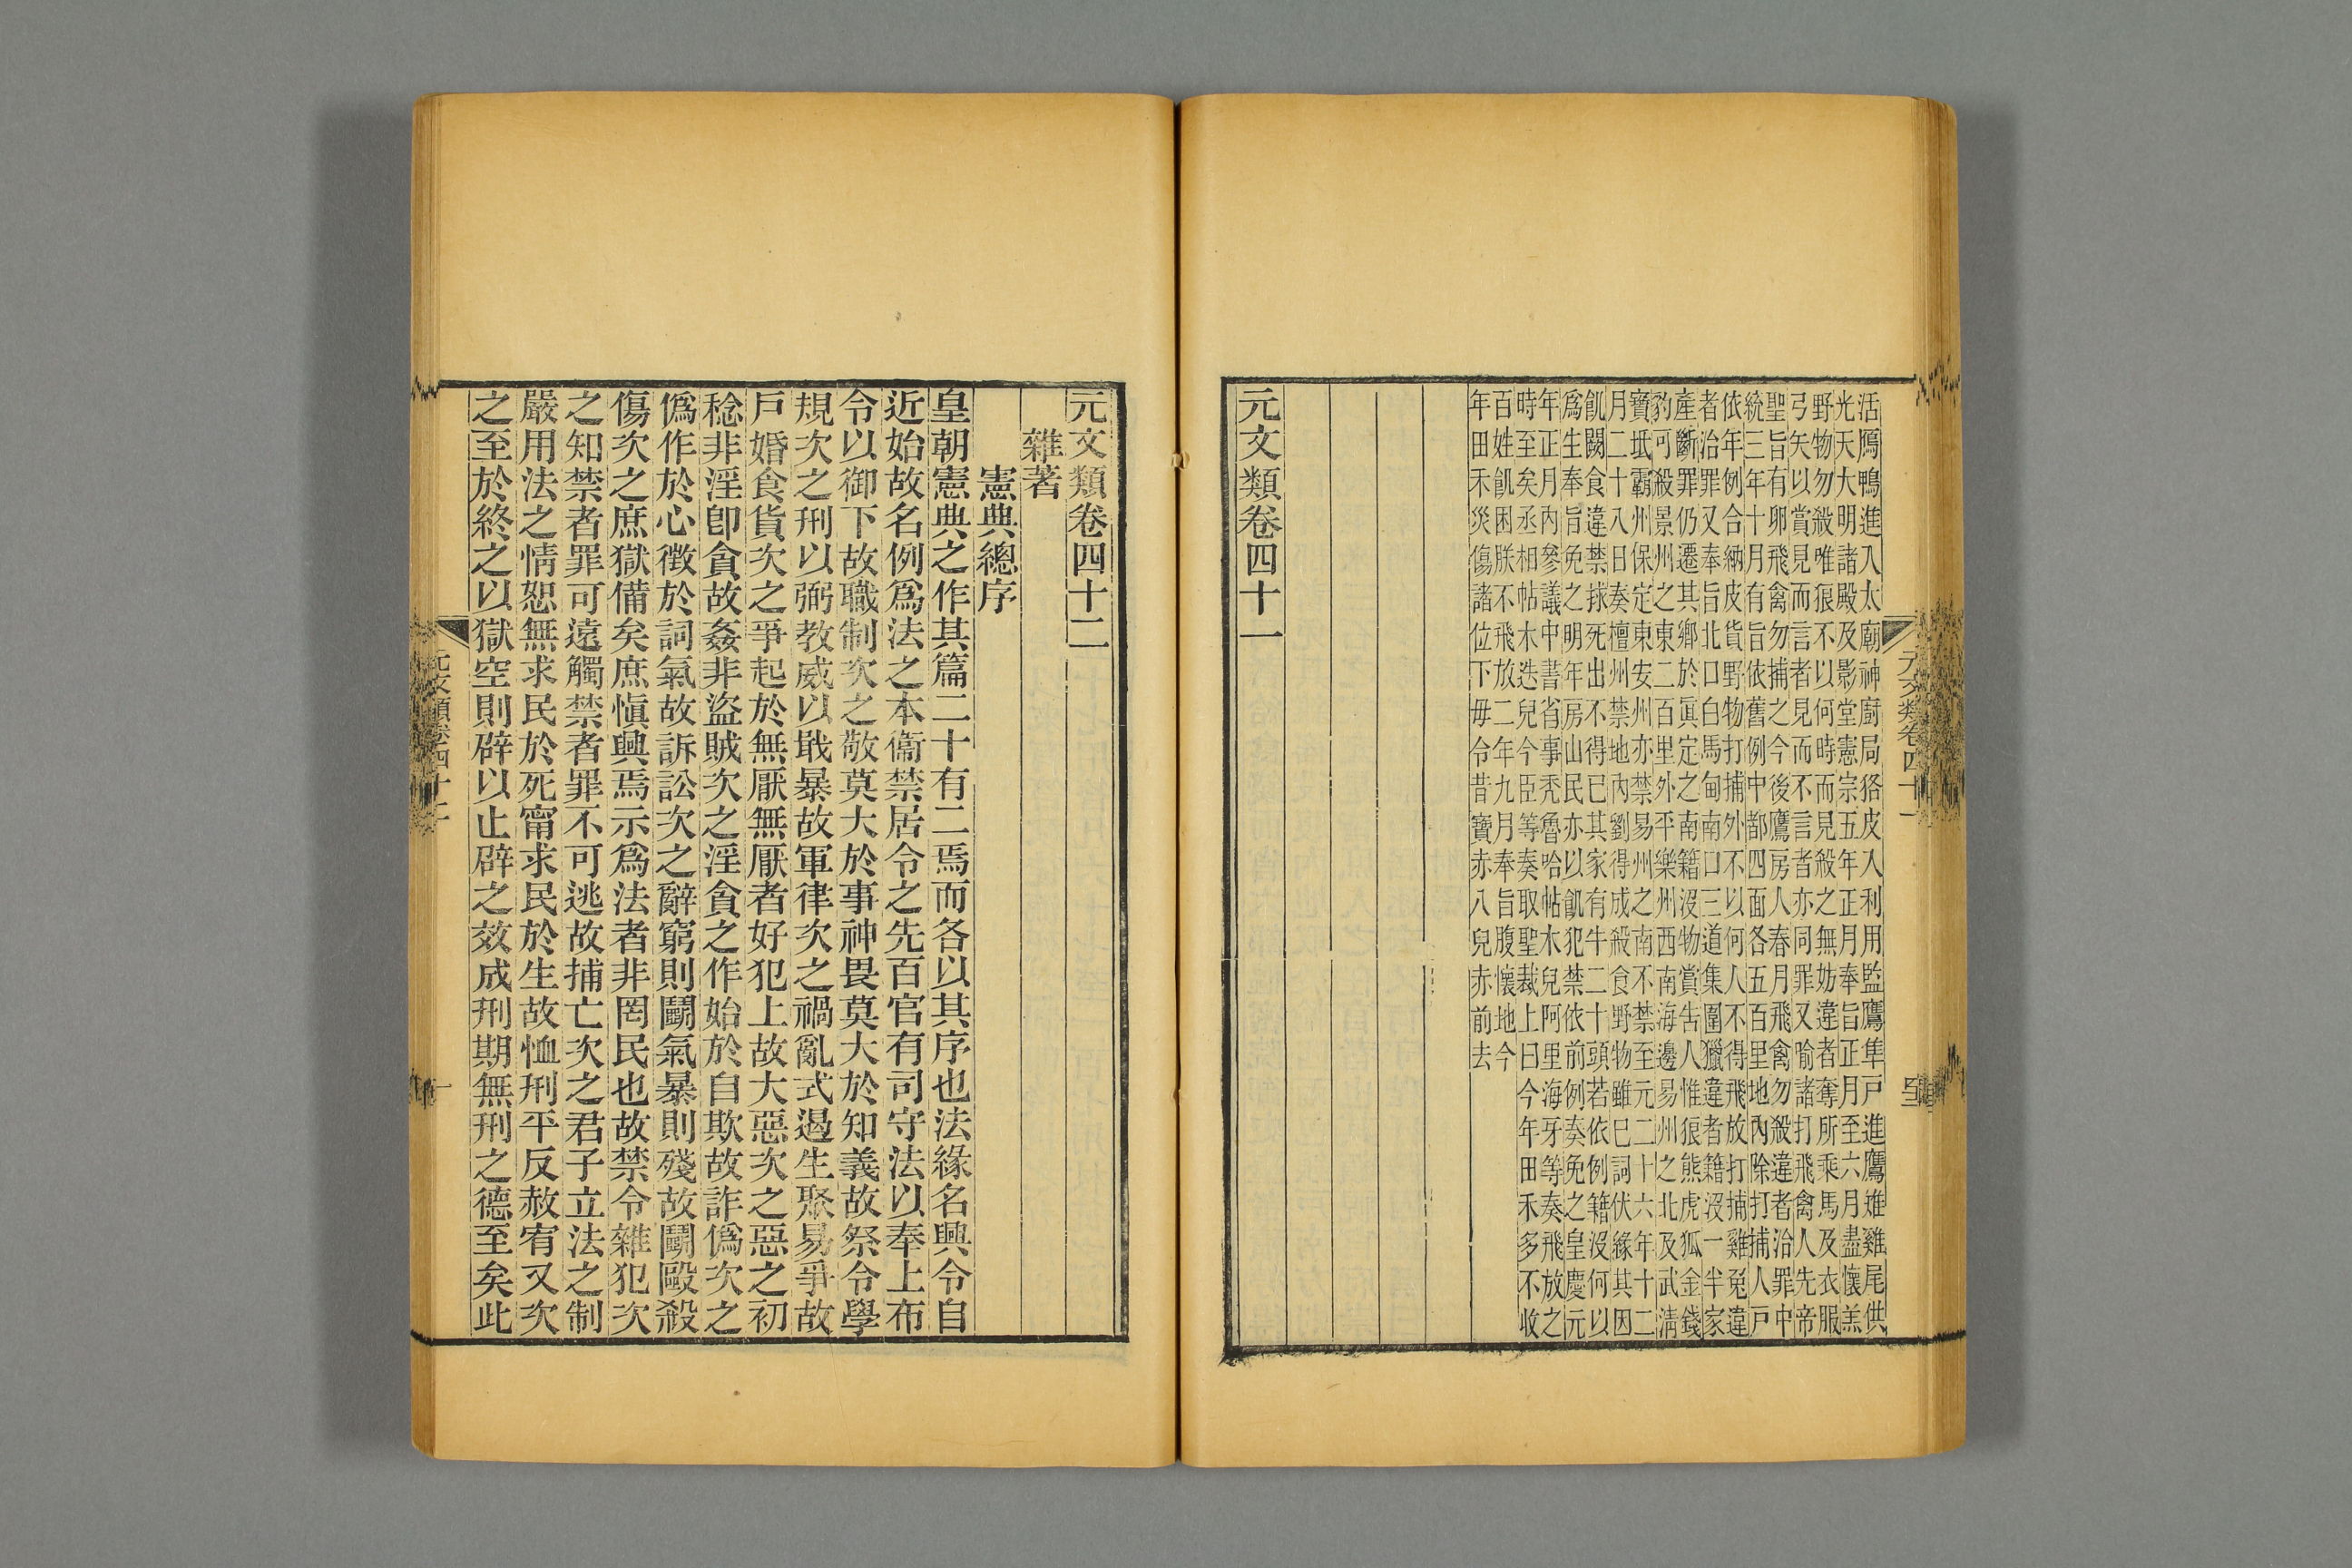 活鴈鴨進入太廟神廚局狢皮入利用監鷹隼戶進鷹雉雞尾供
光天大明諸殿及影堂憲宗五年正月奉旨正月至六月盡懷羔
野物勿殺唯狼不以何時而見殺之無妨違者奪所乘馬及衣服
弓矢以賞見而言者見而不言者亦同罪又喻諸打飛禽人先帝
聖旨有卵飛禽勿捕之今後鷹房人春月飛禽勿殺違者治罪中
統三年十月有旨依舊例中都四面各五百里地內除打捕人戶
依年例合納皮貨野物打捕外不以何人不得飛放打捕雞兎違
者治罪又奉旨北口白馬甸南口三道集圍獵違者籍沒一半家
產斷罪仍遷其鄉於眞定之南籍沒物賞告人惟狼熊虎狐金錢
豹可殺景州之東二百里外平樂州西南海邊易州之北及武淸
寶坻霸州保定東安州亦禁易州之南不禁至元二十六年十二
月二十八日奏檀州禁地內劉得成殺食野物雖巳詞伏緣其因
飢闕食違禁捄死出不得已其家有牛二十頭若依例籍沒何以
爲生奉旨免之明年房山民亦以飢犯禁依前例奏免之皇慶元
年正月內參議中書省事禿魯哈帖木兒阿里海牙等奏飛放之
時至矣丞相帖木迭兒今臣等奏取聖裁上曰今年田禾多不收
百姓飢困朕不飛放二年九月奉旨腹懷地今
年田禾災傷諸位下毋令昔寶赤八兒赤前去
元文類卷四十一
元文類卷四十二
雜著
憲典總序
皇朝憲典之作其篇二十有二焉而各以其序也法緣名興令自
近始故名例爲法之本衞禁居令之先百官有司守法以奉上布
令以御下故職制次之敬莫大於事神畏莫大於知義故祭令學
規次之刑以弼教威以戢暴故軍律次之禍亂式遏生聚易爭故
戶婚食貨次之爭起於無厭無厭者好犯上故大惡次之惡之初
稔非淫卽貪故姦非盜賊次之淫貪之作始於自欺故詐僞次之
僞作於心徵於詞氣故訴訟次之辭窮則鬭氣暴則殘故鬭毆殺
傷次之庶獄備矣庶愼興焉示爲法者非罔民也故禁令雜犯次
之知禁者罪可遠觸禁者罪不可逃故捕亡次之君子立法之制
嚴用法之情恕無求民於死甯求民於生故恤刑平反赦宥又次
之至於終之以獄空則辟以止辟之效成刑期無刑之德至矣此
元文類卷四十一
元文類卷四十二
一